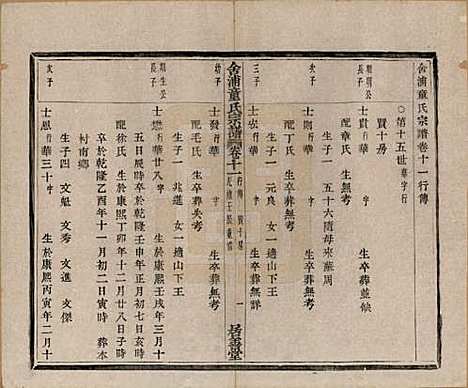 舍浦童氏宗譜卷十一行傳
賢十房
○第十五世華字行
期明公長子
士貴行華
生卒葬並缺
配章氏 無考
生子一 五十六隨母來蕭周
次子
士則行華
生卒葬無考
配丁氏 無考
生子一 元良 女一適山下王
三子
士宏行華
生卒葬無詳
舍浦童氏宗譜
卷十一
行傳 賢十房
一
居善堂
幼子
士發行華
生卒葬無考
配毛氏 生卒葬失考
生子一 兆進 女一適山下王
期生公長子
士懋行華廿八
生於康熙壬戌年三月十
五日辰時卒於乾隆壬申年正月初七日亥時
配徐氏 生於康熙丁卯年十二月廿八日子時
卒於乾隆乙酉年十一月初二日寅時 葬本
村南鄉
生子四 文魁 文秀 文進 文傑
次子
士恩行華三十
生於康熙丙寅年二月十